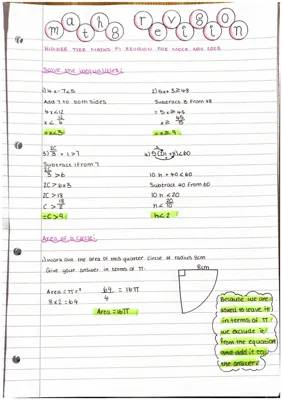 maths revision
HIGHER TIER MATHS P1 REVISION FOR MOCK NOV 2023
Solve the inequalities:
1) 4x-7<5
Add 7 to both sides
4x<12
x< 12/4
=x<3
2) 5x+3≥48
Subtract 3 from 48
=5x≥45
x≥ 45/5
=x≥9
3) x/3 + 1>7
Subtract 1 from 7
x/3 >6
x>6x3
x>18
=x>9
4) 5(2n+8)<60
10n+40<60
Subtract 40 from 60
10n<20
n< 20/10
n<2
Area of a circle:
1) Work out the area of this quarter circle of radius 8cm
Give your answer in terms of π.
8cm
Area = πr²
8x2=64
64/4 = 16π
Area = 16π
Because we are
asked to leave it
in terms of π
we exclude it
from the equation
and add it to
the answer!